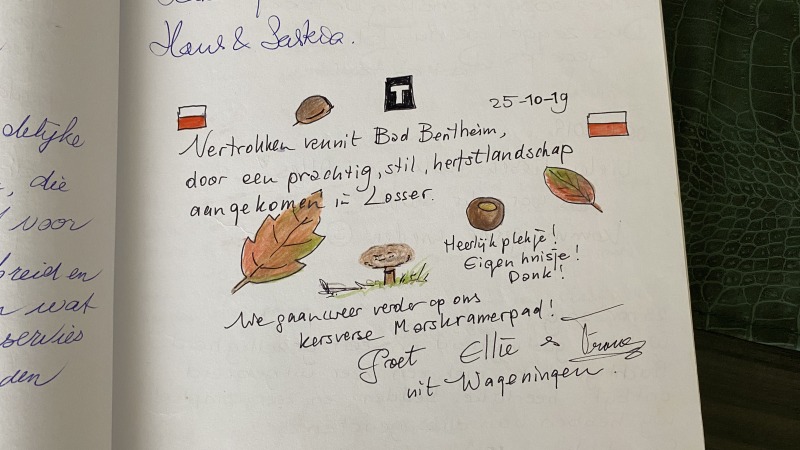 Hans & Saskia.
T
25-10-19
Vertrokken vanuit Bad Bentheim,
door een prachtig, stil, herfstlandschap
aangekomen in Losser.
Heerlijk plekje!
Eigen huisje!
Dank!
We gaan weer verder op ons
kersverse Marskramerpad!
Groet Ellie &
uit Wageningen.
delijke
, die
voor
breid en
wat
servies
den